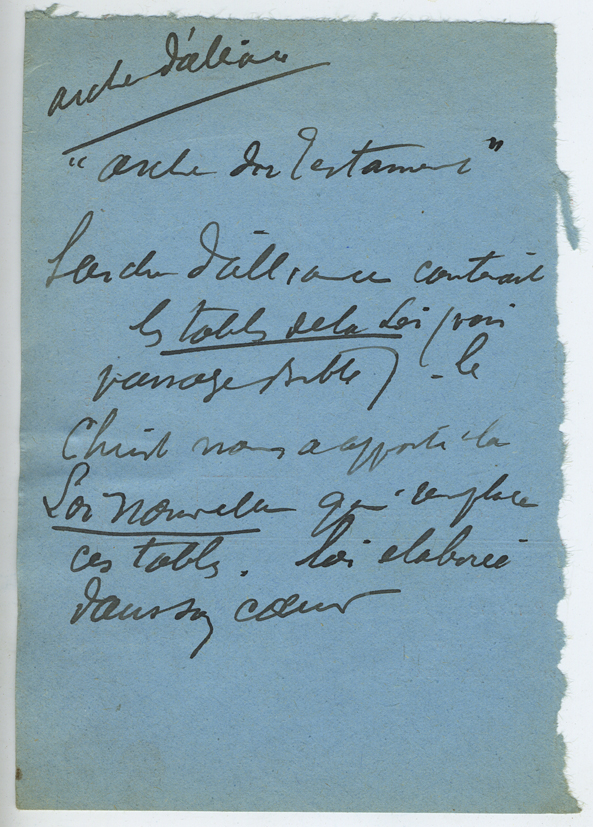 arche d'alliance
"arche du Testament"
L'arche d'alliance contenait
les tables de la Loi (voir
passage bible) - le
Christ nous a apporté la
Loi nouvelle qui remplace
ces tables. Loi elaborée
dans son cœur